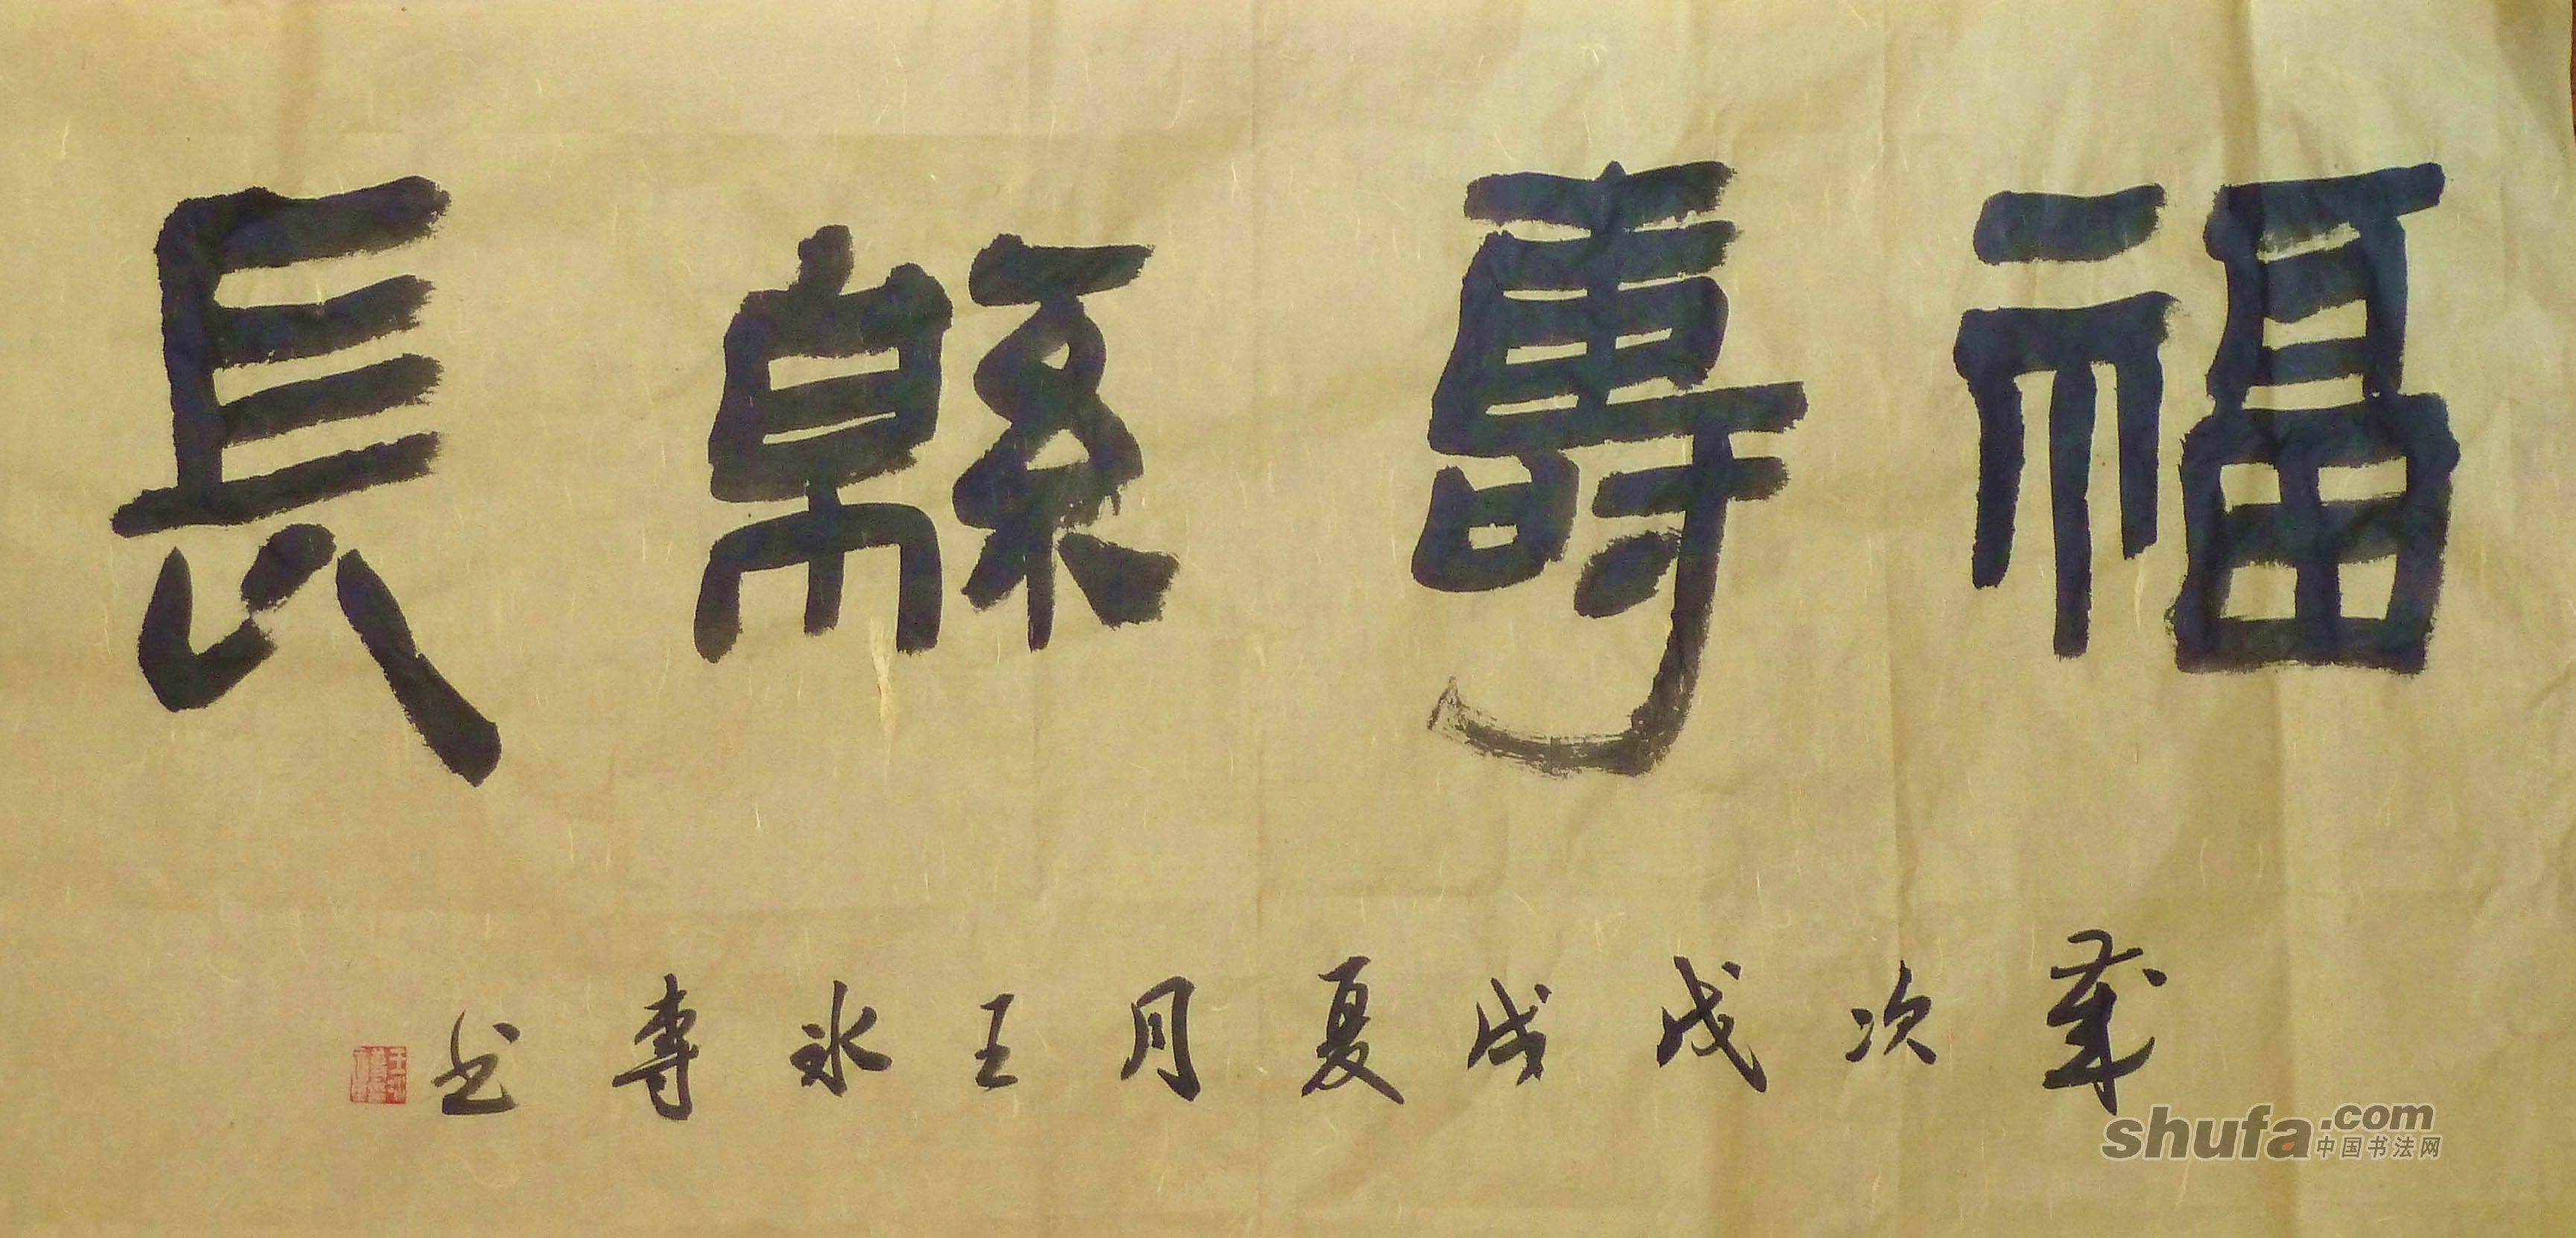 福壽緜長
歲次戊戌夏月王冰專书
shufa.com
中国书法网